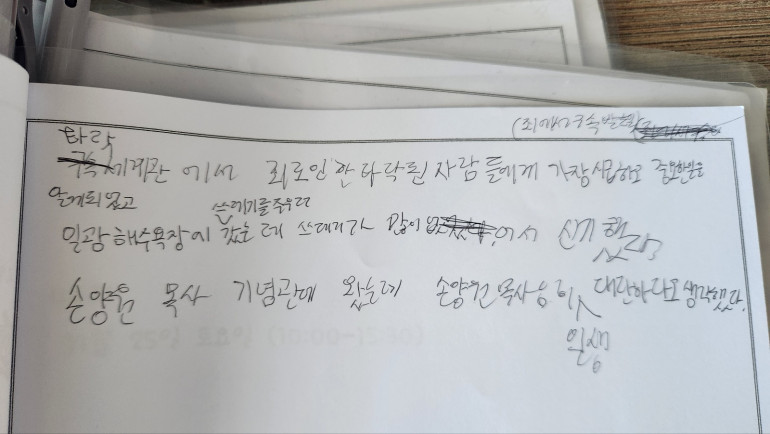 (죄에서 구속 받을)
타락
세계관 에서 죄로인한 타락된 사람들에게 가장 시급하고 중요한일을
알게되 었고 쓰에기를 주우러
일광 해수욕장에 갔는데 쓰레기가 많이 없어서 신기했다
손양원 목사 기념관에 왔는데 손양원 목사님이 대단하다고 생각했다.
인생